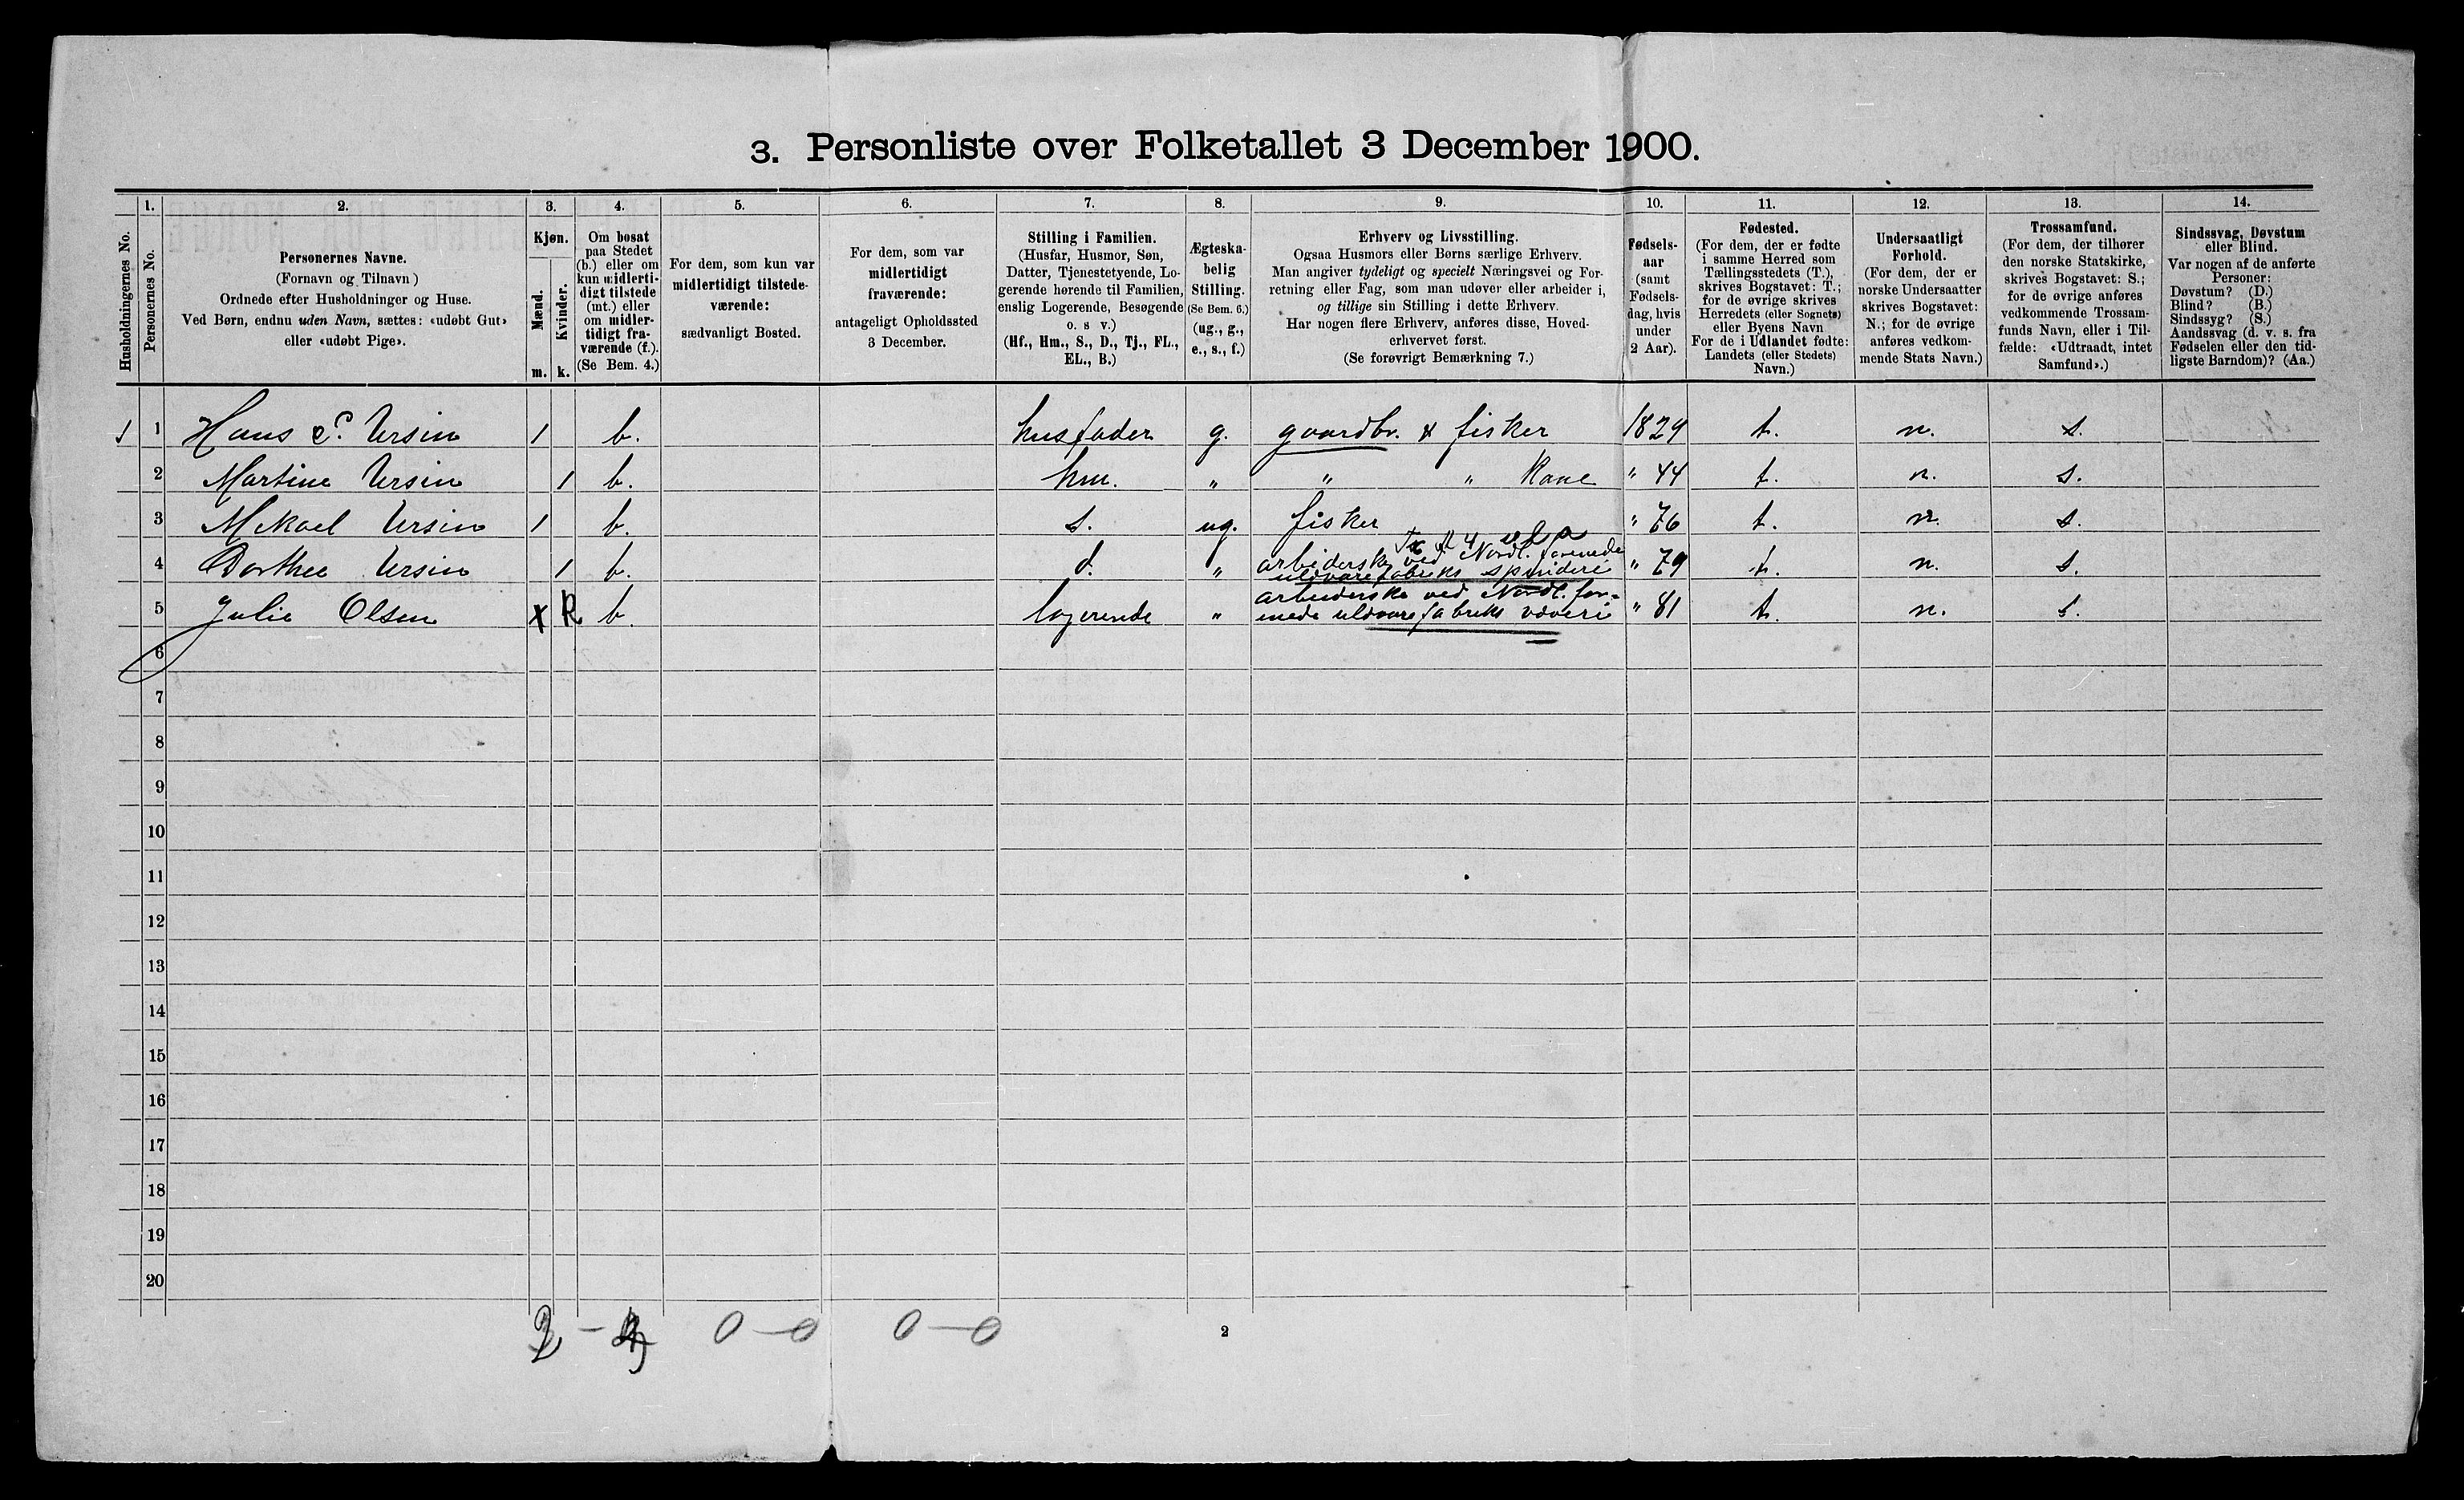 3. Personliste over Folketallet 3 December 1900.
Husholdningernes No.
1.
Personernes No.
2.
Personernes Navne.
(Fornavn og Tilnavn)
Ordnede efter Husholdninger og Huse.
Ved Børn, endnu uden Navn, sættes: «udøbt Gut»
eller «udøbt Pige».
3.
Kjøn.
Mænd.
Kvinder.
m. k.
4.
Om bosat
paa Stedet
(b.) eller om
kun midlerti-
digt tilstede
(mt.) eller
om midler-
tidigt fra-
værende (f.).
(Se Bem. 4.)
5.
For dem, som kun var
midlertidigt tilstede-
værende:
sædvanligt Bosted.
6.
For dem, som var
midlertidigt
fraværende:
antageligt Opholdssted
3 December.
7.
Stilling i Familien.
(Husfar, Husmor, Søn,
Datter, Tjenestetyende, Lo-
gerende hørende til Familien,
enslig Logerende, Besøgende
o. s v.)
(Hf., Hm., S., D., Tj., FL.,
EL., B.)
8.
Ægteska-
belig
Stilling.
(Se Bem. 6.)
(ug., g.,
e., s., f.)
9.
Erhverv og Livsstilling.
Ogsaa Husmors eller Børns særlige Erhverv.
Man angiver tydeligt og specielt Næringsvei og For-
retning eller Fag, som man udøver eller arbeider i,
og tillige sin Stilling i dette Erhverv.
Har nogen flere Erhverv, anføres disse, Hoved-
erhvervet først.
(Se forøvrigt Bemærkning 7.)
10.
Fødsels-
aar
(samt
Fødsels-
dag, hvis
under
2 Aar).
11.
Fødested.
(For dem, der er fødte
i samme Herred som
Tællingsstedets (T.),
skrives Bogstavet: T.;
for de øvrige skrives
Herredets (eller Sognets)
eller Byens Navn
For de i Udlandet fødte:
Landets (eller Stedets)
Navn.)
12.
Undersaatligt
Forhold.
(For dem, der er
norske Undersaatter
skrives Bogstavet:
N.; for de øvrige
anføres vedkom-
mende Stats Navn.)
13.
Trossamfund.
(For dem, der tilhører
den norske Statskirke,
skrives Bogstavet: S.;
for de øvrige anføres
vedkommende Trossam-
funds Navn, eller i Til-
fælde: «Udtraadt, intet
Samfund».)
14.
Sindssvag, Døvstum
eller Blind.
Var nogen af de anførte
Personer:
Døvstum? (D.)
Blind? (B.)
Sindssyg? (S.)
Aandssvag (d. v. s. fra
Fødselen eller den tid-
ligste Barndom)? (Aa.)
1 1 Hans P. Ursin 1 b. husfader g. gaardbr. & fisker 1829 t. n. s.
2 Martine Ursin 1 b. hm. " " " Kone " 44 t. n. s.
3 Mikael Ursin 1 b. s. ug. fisker " 76 t. n. s.
4 Dorthee Ursin 1 b. d. " arbeiderske ved Nordl. forenede
uldvarefabriks spinderi " 79 t. n. s.
5 Julie Olsen x k b. logerende " arbeiderske ved Nordl. for-
enede uldvarefabriks væveri " 81 t. n. s.
6
7
8
9
10
11
12
13
14
15
16
17
18
19
20
2 - 3 0 - 0 0 - 0
2